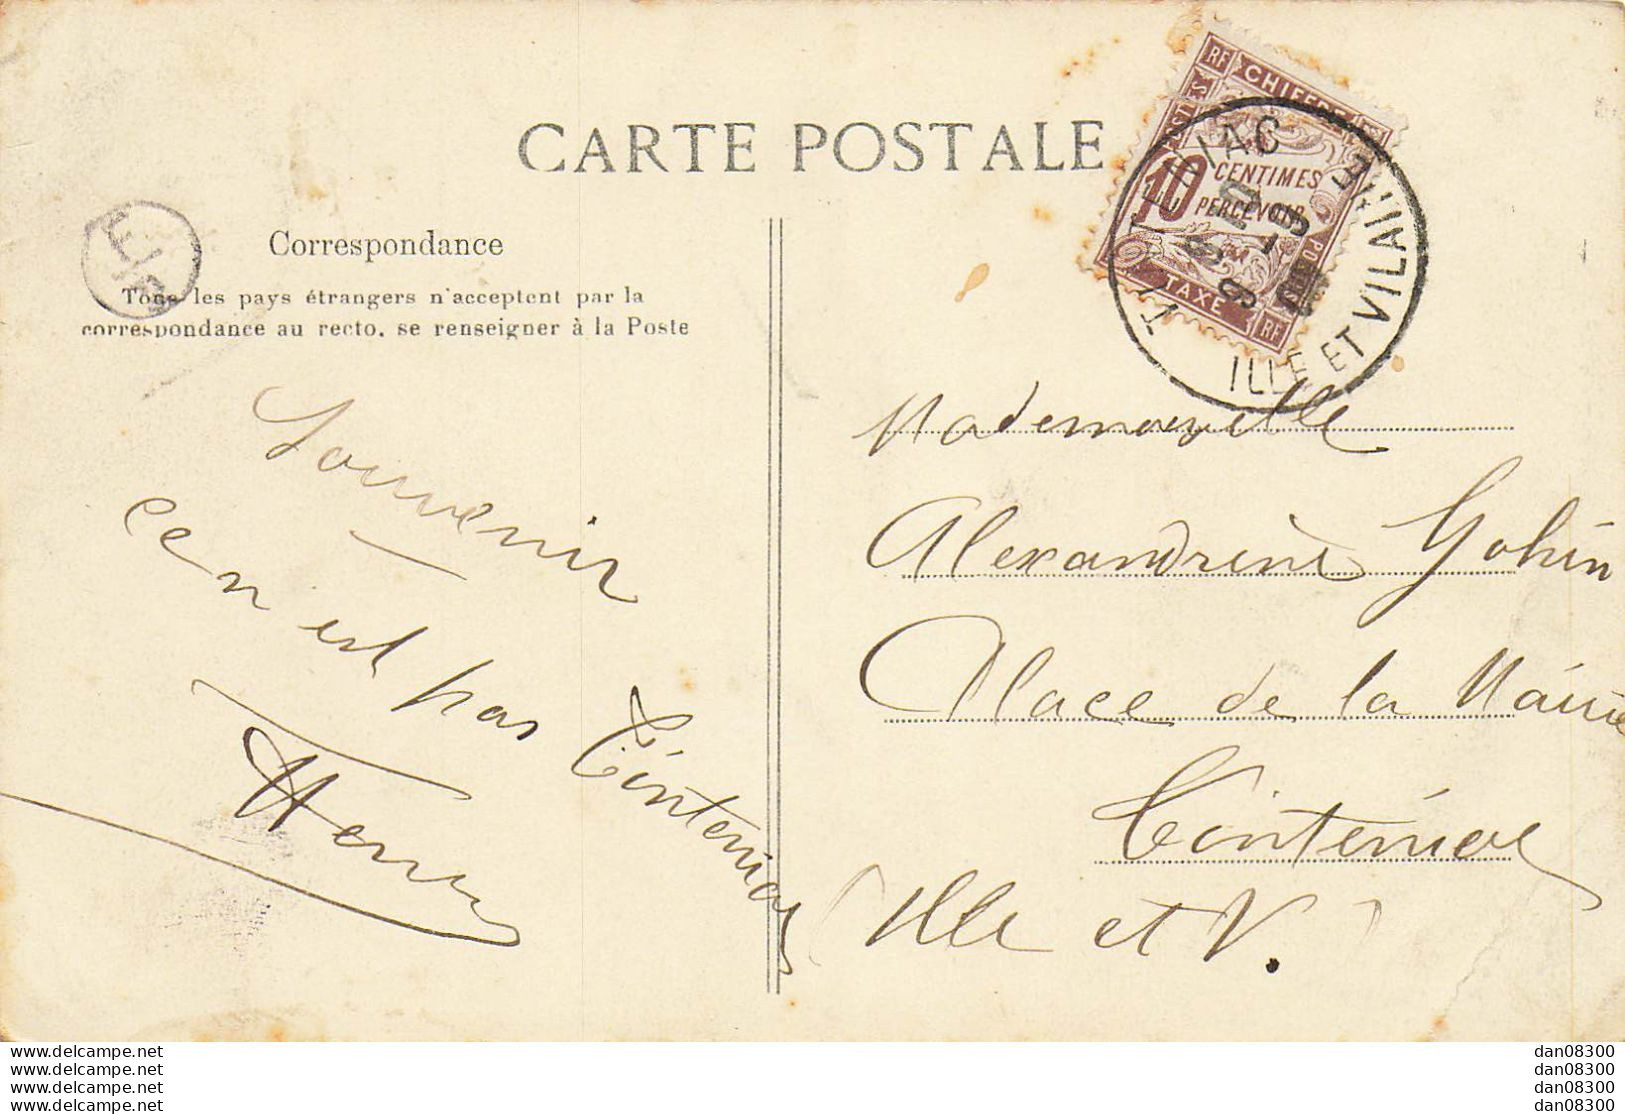 CARTE POSTALE
Correspondance
Tous les pays étrangers n'acceptent par la
correspondance au recto, se renseigner à la Poste
Souvenir
ce n'est pas Tinteniac
Henri
RF CHIFFRE
10 CENTIMES
PERCEVOIR
TAXE RF
ILLE ET VILAINE
Mademoiselle
Alexandrine Gohin
Place de la Mairie
Tinténiac
(Ille et V.)
www.delcampe.net
www.delcampe.net
www.delcampe.net
www.delcampe.net
dan08300
dan08300
dan08300
dan08300